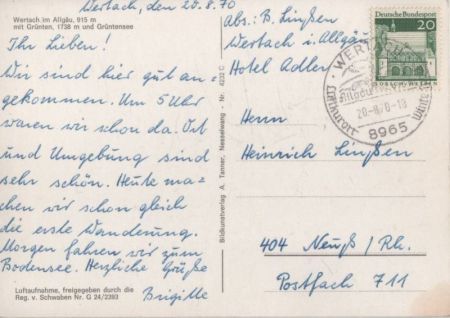 Wertach, den 20.8.70
Wertach im Allgäu, 915 m
mit Grünten, 1738 m und Grüntensee
Ihr Lieben!
Wir sind hier gut an-
gekommen. Um 5 Uhr
waren wir schon da. Ort
und Umgebung sind
sehr schön. Heute ma-
chen wir schon gleich
die erste Wanderung.
Morgen fahren wir zum
Bodensee. Herzliche Grüße
Brigitte
Luftaufnahme, freigegeben durch die
Reg. v. Schwaben Nr. G 24/2393
Bildkunstverlag A. Tanner, Nesselwang - Nr. 4233 C
Abs.: B. Linßen
Wertach i. Allgäu
Hotel Adler
Deutsche Bundespost
20
WERTACH
Allgäu
20.-8.70-18
Luftkurort
8965
Herrn
Heinrich Linßen
404 Neuß/Rh.
Postfach 711